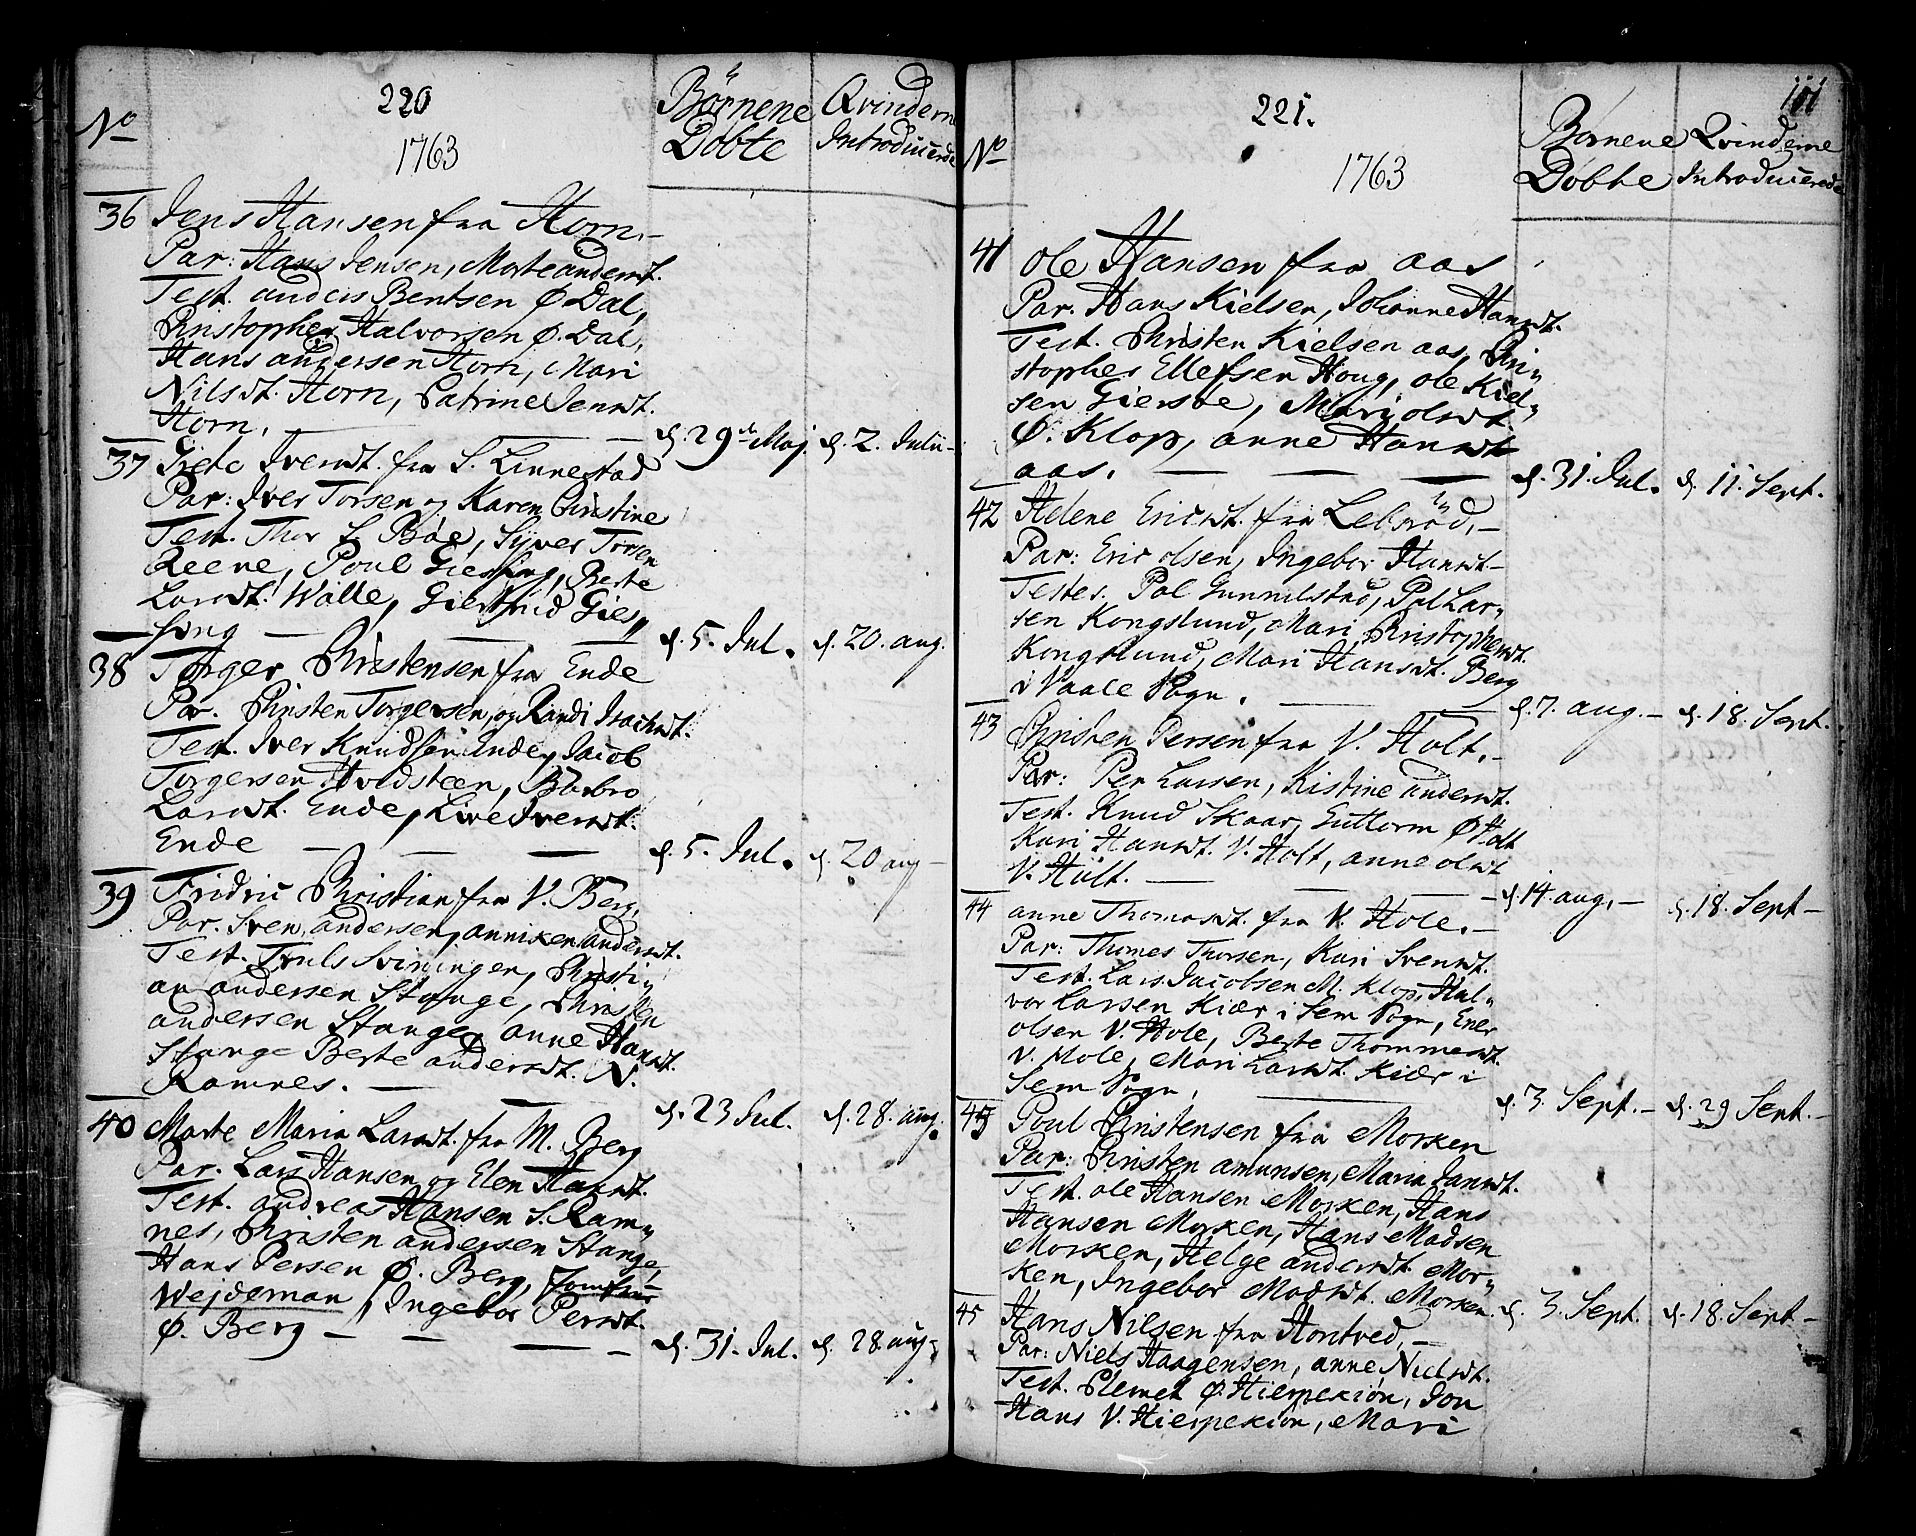 220
1763
No
Børnene Døbte
Qvinderne Introducerede
36 Jens Hansen fra Horn.
Par: Hans Jensen, Marte andersdt.
Test. anders Bentsen Ø. Dal,
Christopher Halvorsen Ø. Dal,
Hans andersen Horn, Mari
Nilsdt. Horn, Catrine Jensdt.
Horn. d. 29de Maj. d. 2. Julii
37 Grete Iversdt. fra S. Linnestad
Par: Iver Torsen og Karen Christine
Test. Thor S. Bøe, Syver Torsen
Reene, Poul Giesing, Berte
Larsdt. Wølle, Giertrud Gies„
sing d. 5. Jul. d. 20. aug.
38 Torger Christensen fra Ende
Par. Christen Torgersen og Randi Isachsdt.
Test. Iver Knudsen Ende, Jacob
Torgersen Hvidsteen, Barbro
Larsdt. Ende, Live Iversdt.
Ende d. 5. Jul. d. 20 aug
39 Fridric Christian fra V. Berg,
Par. Sven andersen, anniken andersdt.
Test. Truls Svininger, Christi„
an andersen Stange, Christen
andersen Stange, anne Hansdt.
Stange Berte andersdt. N.
Ramnes. d. 23 Jul. d. 28. aug.
40 Marte Maria Larsdt. fra M. Berg
Par. Lars Hansen og Elen Hansdt.
Test. andreas Hansen S. Ram„
nes, Christen andersen Stange,
Hans Persen Ø. Berg, Jomfrue
Wejdeman, Ingebor Persdt.
Ø. Berg d. 31. Jul. d. 28. aug.
221.
111
1763
No
Børnene Døbte
Qvinderne Introducerede
41 Ole Hansen fra aas
Par. Hans Kielsen, Johanne Hansdt.
Test. Christen Kielsen aas, Chri„
stopher Ellefsen Houg, Ole Kiel„
sen Giersøe, Mari olsdt.
Ø. Klop, anne Hansdt
aas. d. 31. Jul. d. 11. Sept.
42 Helene Ericsdt. fra Lebsrød,
Par: Eric olsen, Ingebor Hansdt
Testes. Pal Gunnilstad, Pal Lar„
sen Kongslund, Mari Christophersdt.
Kongslund, Mari Hansdt. Berg
i Vaale Sogn. d. 7. aug. d. 18. Sept.
43 Christen Persen fra V. Holt.
Par: Per Larsen, Kistine andersdt.
Test. Knud Skaar, Guttorm Ø Holt
Kari Hansdt. V. Holt, anne olsdt
V. Hølt. d. 14. aug. d. 18. Sept
44 anne Thomasdt. fra V. Hole.
Par: Thomes Thorsen, Kari Svensdt.
Test. Lars Jacobsen M. Klop, Hal„
vor Larsen Kiær i Sem Sogn, Ener
olsen V. Hole, Berte Thommesdt.
V. Hole, Mari Larsdt. Kiær i
Sem Sogn, d. 3. Sept. d. 29 Sept.
45 Poul Christensen fra Morken
Par: Christen amunsen, Maria Jansdt.
Test. ole Hansen Morken, Hans
Hansen Morken, Hans Madsen
Morken, Helge andersdt. Mor„
ken, Ingebor Madsdt. Morken. d. 3. Sept. d. 18. Sept
45 Hans Nilsen fra Hontved,
Par: Niels Haagensen, anne Nielsdt.
Test. Clemet Ø. Hierpekiøn, Jon
Hans V. Hierpekiøn, Mari